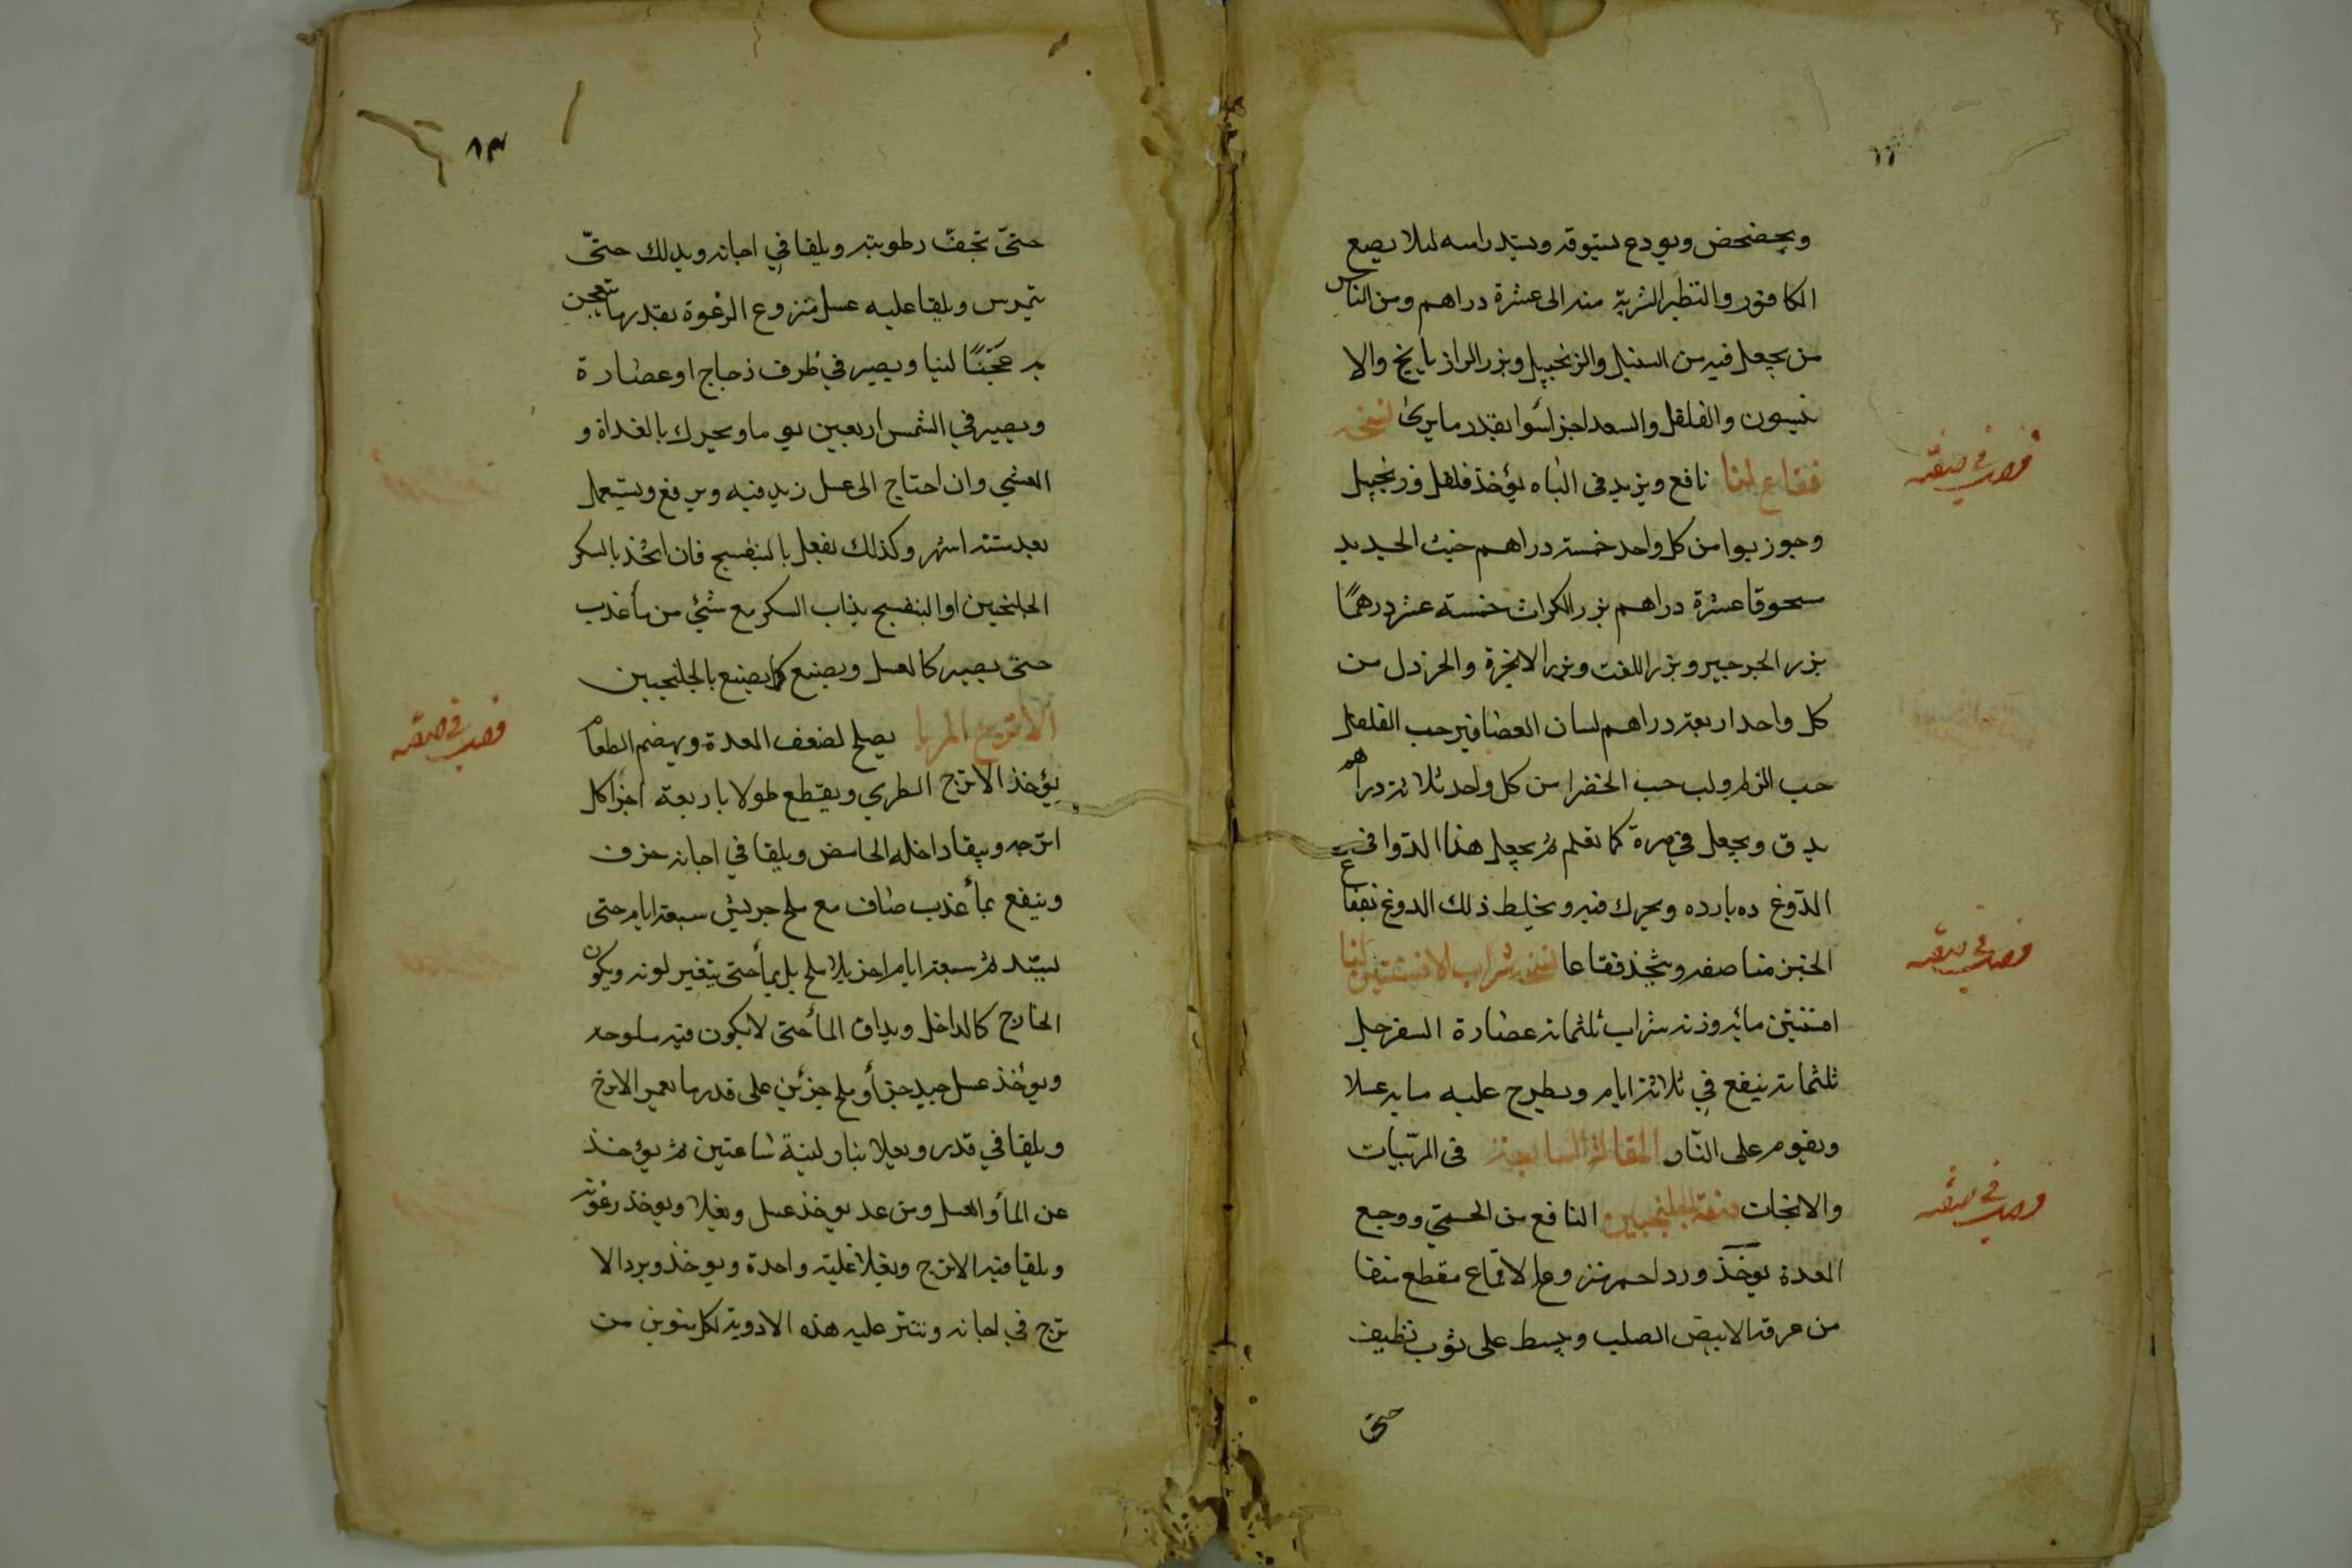 ويحضحض ويودع بستوقه ويشد راسه لىلا يضع
الكافور والتطير الشربة منه الى عشرة دراهم ومن الناس
من يجعل فيه من السنبل والزنجبيل وبزر الرازيانج والا
نيسون والفلفل والسعد اجزا سوا بقدر ما يرى نسخه
فصل في صفة
فقاع لنا نافع ويزيد في الباه يؤخذ فلفل وزنجبيل
وجوز بوا من كل واحد خمسة دراهم خبث الحديد
مسحوقا عشرة دراهم بزر الكراث خمسة عشر درهمًا
بزر الجرجير وبزر اللفت وبزر الانجرة والخردل من
كل واحد اربعة دراهم لسان العصافير حب الفلفل
حب الزلم ولب حب الخضرا من كل واحد ثلاثة دراهم
يدق ويجعل في صرة كما تقدم ثم يجعل هذا الدوا في
الدوغ ده بارده ويحرك فيه ويخلط ذلك الدوغ بفقاع
الخبز مناصفه ويتخذ فقاعا نسخه شراب الافسنتين لنا
فصل في صفة
افسنتين مائه وزنه شراب ثلثمائه عصارة السفرجل
ثلثمائه ينقع في ثلاثة ايام ويطرح عليه مايه عسلا
ويقوم على النّار المقالة السابعة في المربّيات
والانبجات صفة الجلنجبين النافع من الحمى ووجع
فصل في صفة
المعدة يوخذ ورد احمر منزوع الاقماع مقطع منقا
من عرقه الابيض الصلب ويبسط على ثوب نظيف
حتى
٨٣
حتىّ تجفّ رطوبته ويلقا في اجانه ويدلك حتىّ
يتمرس ويلقا عليه عسل منزوع الرغوة بقدر ما تعجن
به عجّنًا لينا ويصير في ظرف زجاج او عضارة
ويصير في الشمس اربعين يوما ويحرك بالغداة و
العشي وان احتاج الى عسل زيد فيه ويرفع ويستعمل
بعد ستته اشهر وكذلك يفعل بالبنفسج فان اتخذ بالسكر
الجلنجبين او البنفسج يذاب السكر مع شيء من مأ عذب
حتى يصير كالعسل ويصنع كما يصنع بالجلنجبين
الاترج المربا يصلح لضعف المعدة ويهضم الطعام
فصل في صفة
يؤخذ الاترج الطري ويقطع طولا باربعة اجزا كل
اترجه ويبقا داخله الحامض ويلقا في اجانه خزف
وينقع بمأ عذب صاف مع ملح جريش سبعة ايام حتى
يشتد ثم سبعة ايام اخر بلا ملح بل بمأ حتى يتغير لونه ويكون
الخارج كالداخل ويذاق المأ حتى لا يكون فيه ملوحه
ويؤخذ عسل جيد جزأ وملح جزئين على قدر ما يغمر الاترج
ويلقا في قدر ويغلا بنار لينة ساعتين ثم يؤخذ
عن المأ والعسل ومن غد يوخذ عسل ويغلا ويوخذ رغوته
ويلقا فيه الاترج ويغلا غلية واحدة ويوخذ ويبرد الا
ترج في اجانه وينثر عليه هذه الادوية لكل منوين من